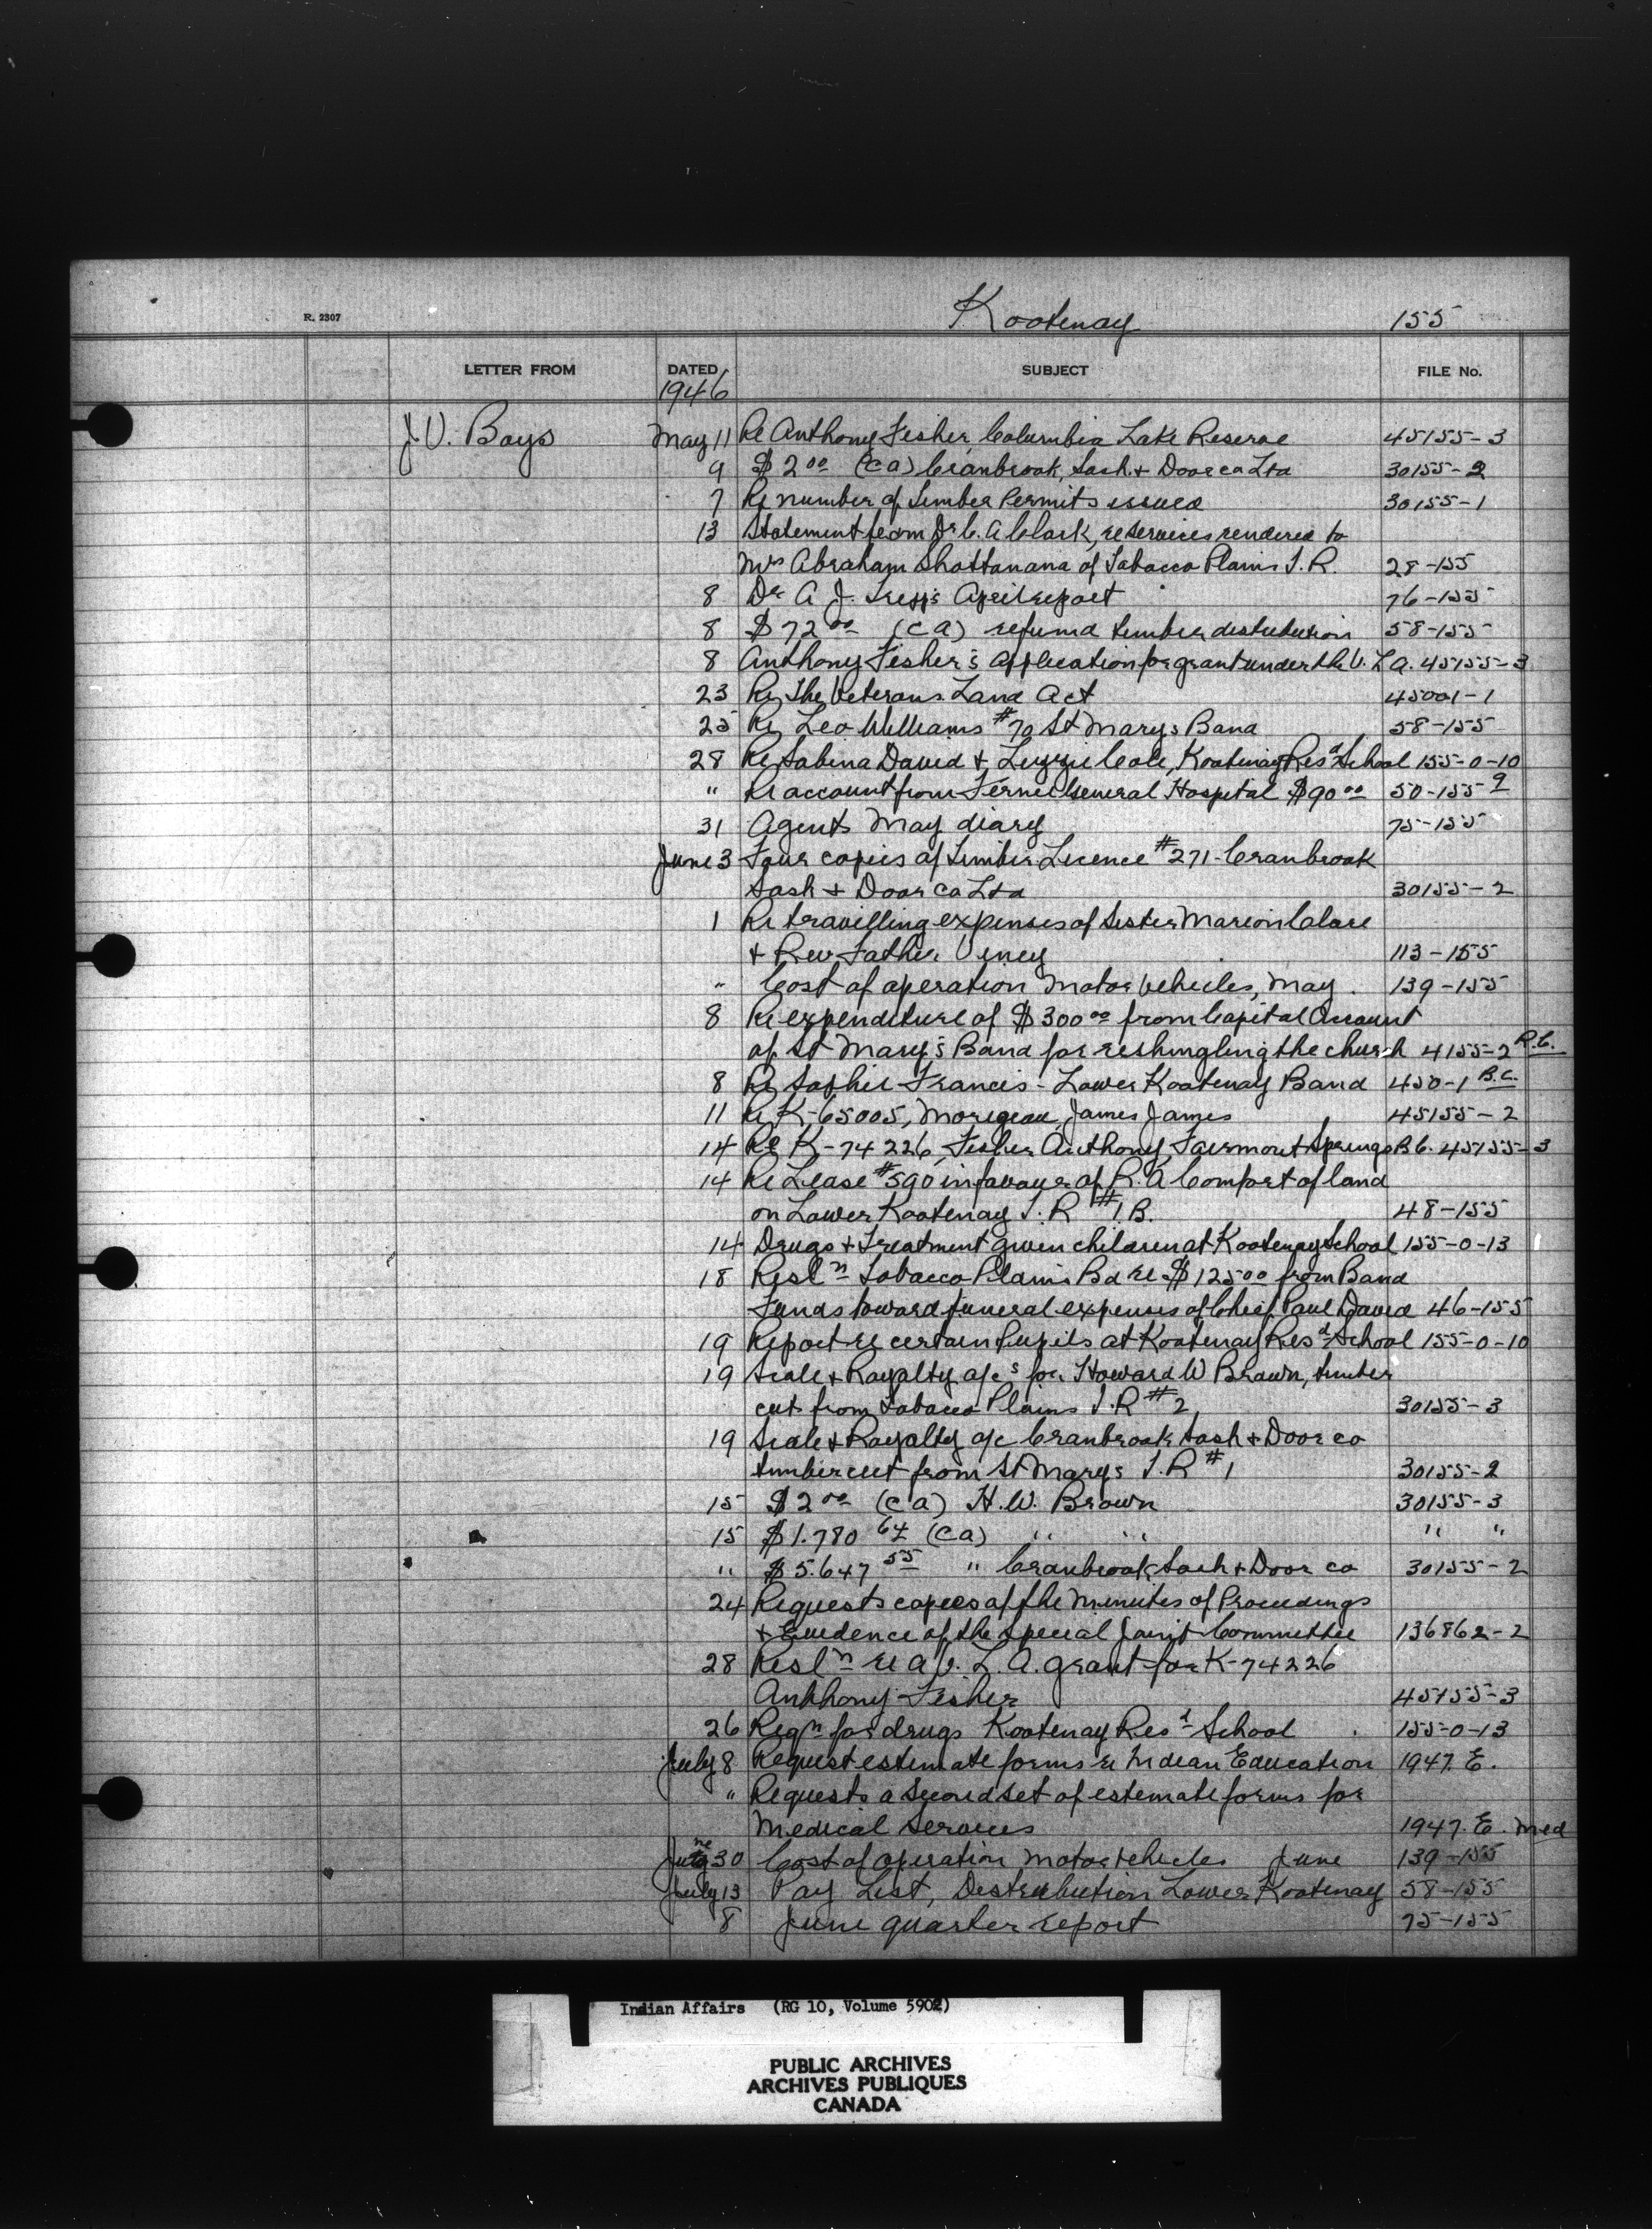 Kootenay 155
R. 2307
LETTER FROM DATED SUBJECT FILE No.
1946
J.V. Boys May 11 Re Anthony Fisher, Columbia Lake Reserve 45155-3
9 $2.00 (ca) Cranbrook, Sash & Door co Ltd 30155-2
7 Re number of timber Permits issued 30155-1
13 Statement from Dr C. A Clark, re services rendered to
Mrs Abraham Shottanana of Tobacco Plains I.R. 28-155
8 Dr A J. April report 76-155
8 $72.00 (ca) refund timber distribution 58-155
8 Anthony Fisher's application for grant under the V.L.A. 45155-3
23 Re the Veterans Land Act 45001-1
25 Re Leo Williams #70 St Marys Band 58-155
28 Re Sabina David & Lizzie Cole, Kootenay Resd School 155-0-10
" Re account from Fernie General Hospital $90.00 50-155 9
31 Agents May diary 75-155
June 3 Four copies of Timber Licence #271 - Cranbrook
Sash & Door co Ltd 30155-2
1 Re travelling expenses of Sister Marion Clare
& Rev Father 113-155
" Cost of operation Motor vehicles, May. 139-155
8 Re expenditure of $300.00 from Capital Account
of St Mary's Band for reshingling the church 4155-2 R.C.
8 Re Sophie Francis - Lower Kootenay Band 450-1 B.C.
11 Re K-65005, Morigeau, James James 45155-2
14 Re K-74226, Fisher Anthony, Fairmont Springs B.C. 45155-3
14 Re Lease #590 in favour of R. A Comfort of land
on Lower Kootenay I.R #1.B. 48-155
14 Drugs & Treatment given children at Kootenay School 155-0-13
18 Resln Tobacco Plains Bd re $125.00 from Band
Funds toward funeral expenses of Chief Paul David 46-155
19 Report re certain Pupils at Kootenay Resd School 155-0-10
19 Scale & Royalty a/cs for Howard W Brown, timber
cut from Tobacco Plains I.R #2 30155-3
19 Scale & Royalty a/c Cranbrook Sash & Door co
timber cut from St Marys I.R #1 30155-2
15 $2.00 (ca) H.W. Brown 30155-3
15 $1.780 64 (ca) " " " "
" $5.647 55 " Cranbrook Sash & Door co 30155-2
24 Requests copies of the Minutes of Proceedings
& Evidence of the special Joint Committee 136862-2
28 Resln re a V.L.A. grant for K-74226
Anthony Fisher 45155-3
26 Reqn for drugs Kootenay Resd School 155-0-13
July 8 Request estimate forms re Indian Education 1947.E.
" Requests a second set of estimate forms for
Medical Services 1947.E. Med
June 30 Cost of operation motor vehicles June 139-155
July 13 Pay List, Distribution Lower Kootenay 58-155
8 June quarter report 75-155
Indian Affairs (RG 10, Volume 5902)
PUBLIC ARCHIVES
ARCHIVES PUBLIQUES
CANADA